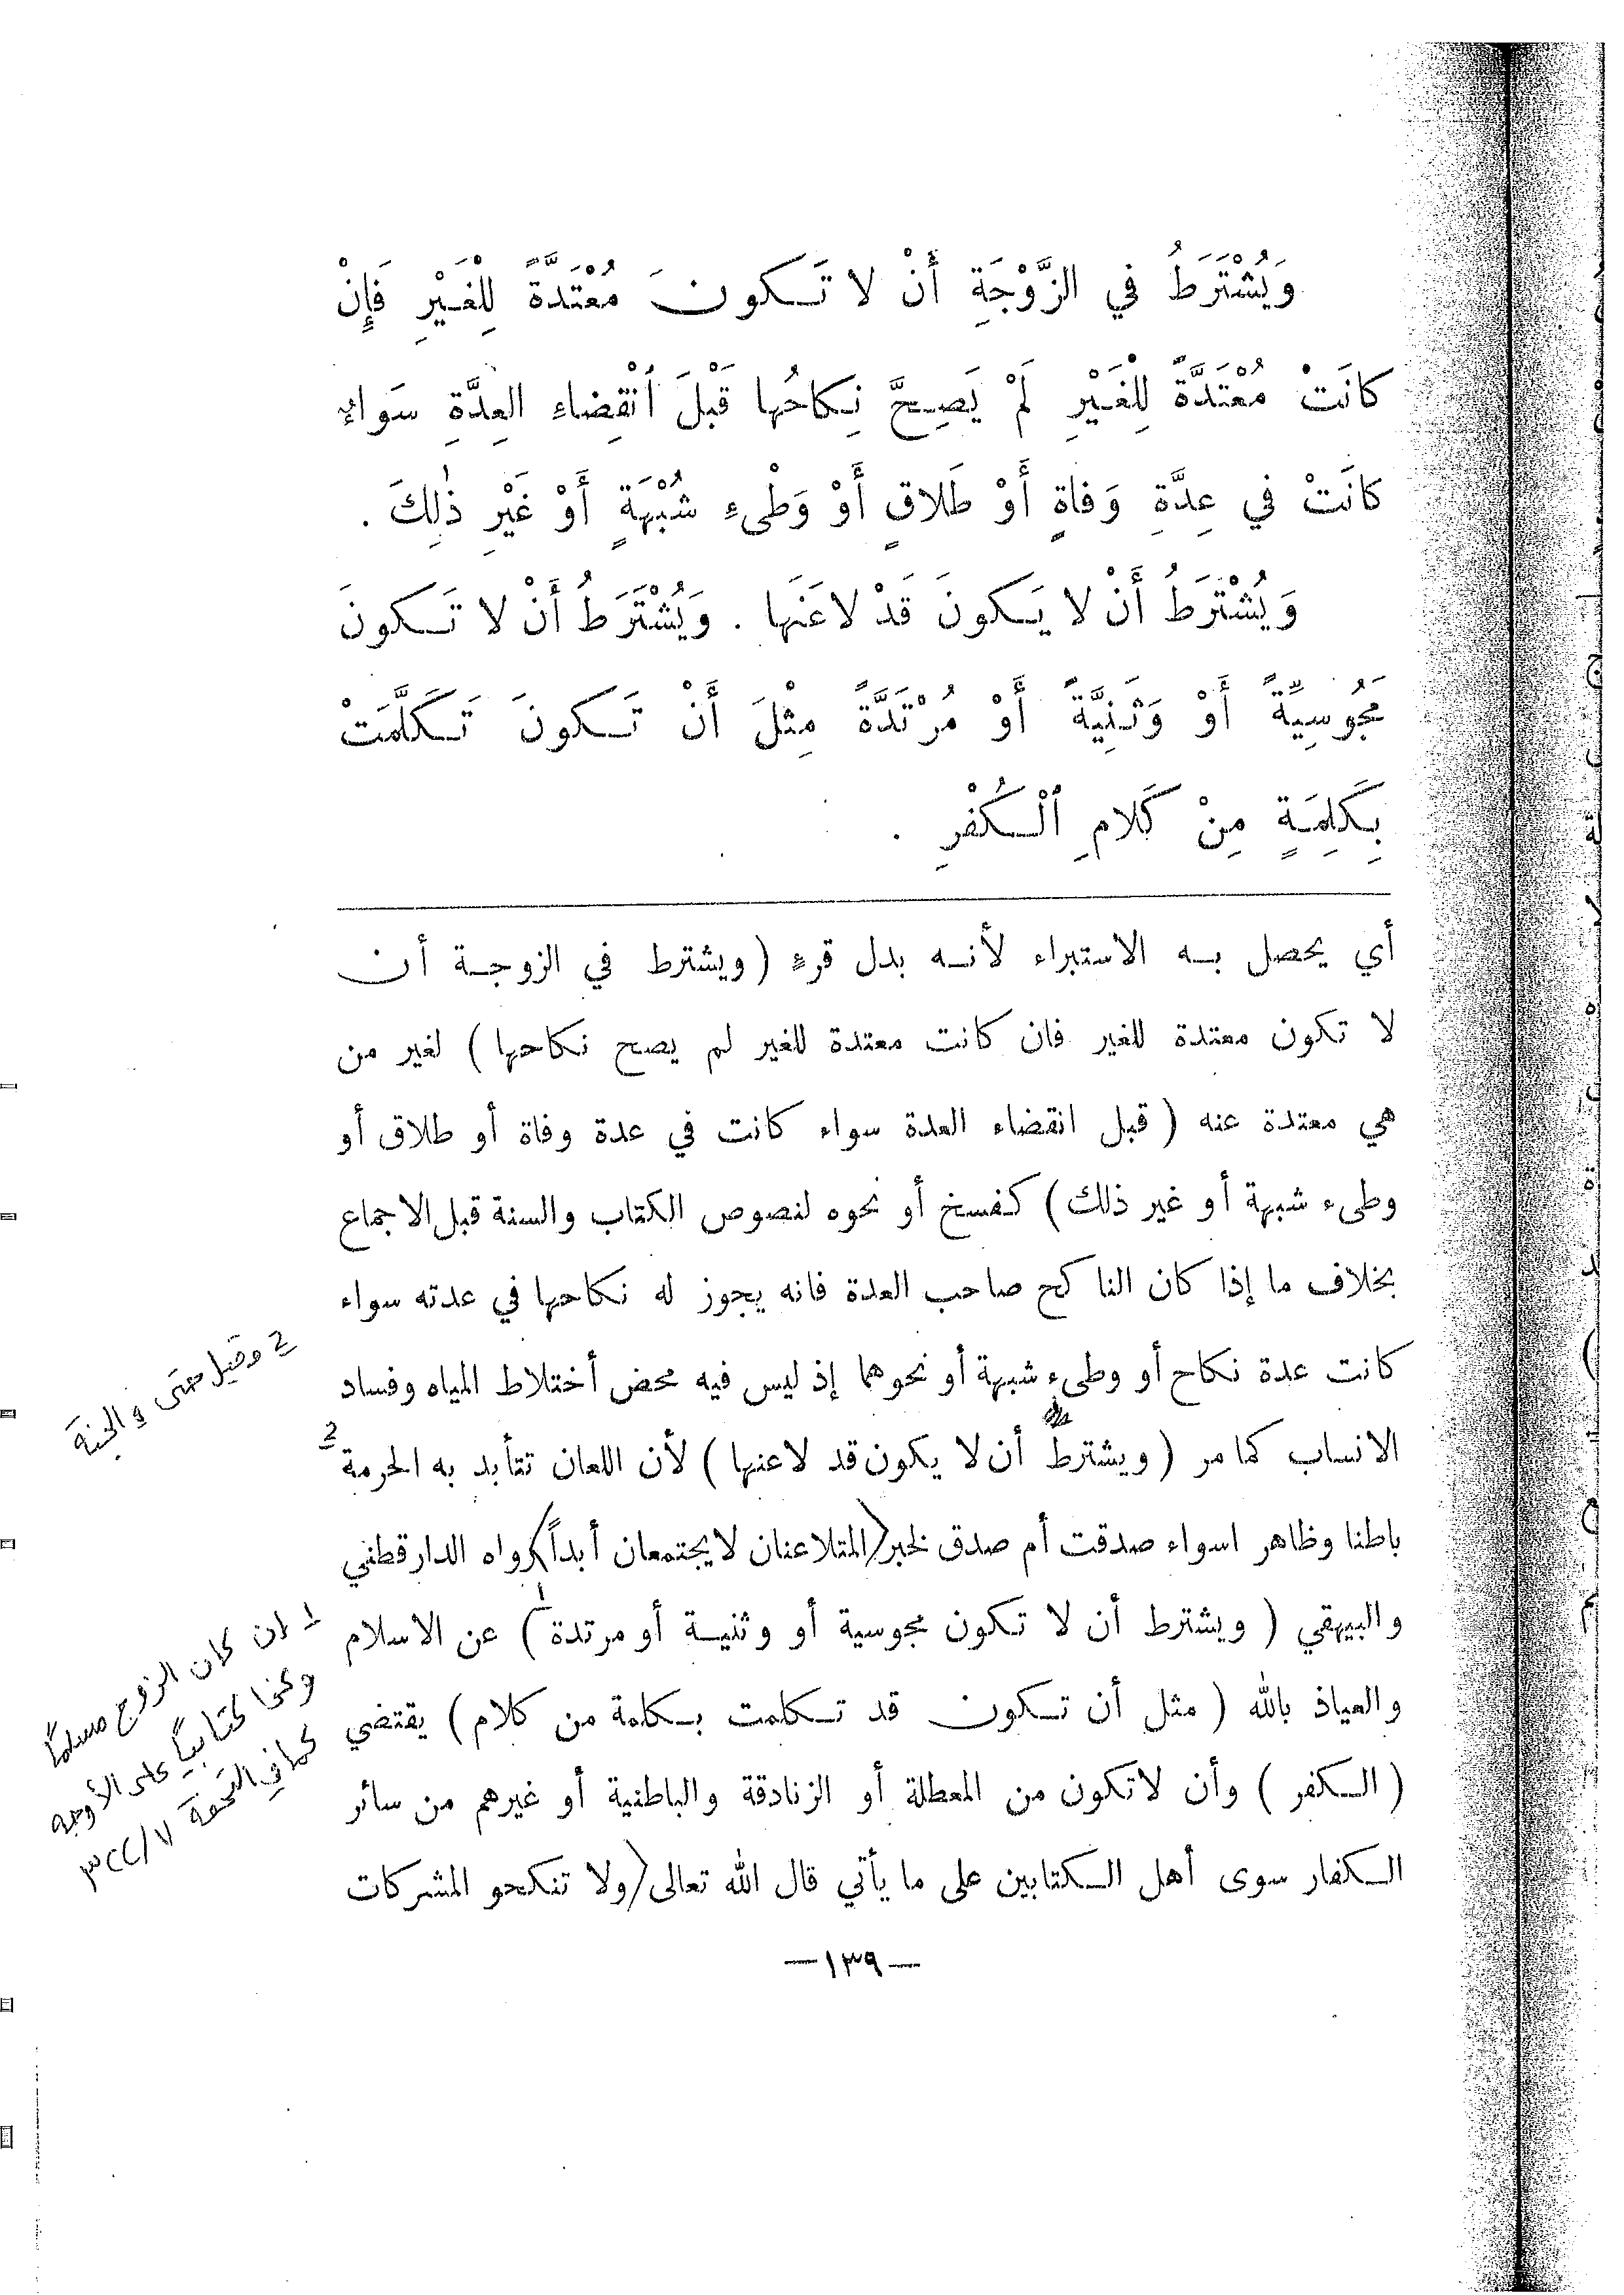 وَيُشْتَرَطُ في الزَّوْجَةِ أَنْ لا تَكونَ مُعْتَدَّةً لِلْغَيْرِ فَإِنْ
كانَتْ مُعْتَدَّةً لِلْغَيْرِ لَمْ يَصِحَّ نِكاحُها قَبْلَ انْقِضاءِ العِدَّةِ سَواءٌ
كانَتْ في عِدَّةِ وَفاةٍ أَوْ طَلاقٍ أَوْ وَطْىءِ شُبْهَةٍ أَوْ غَيْرِ ذٰلِكَ .
وَيُشْتَرَطُ أَنْ لا يَكونَ قَدْ لاعَنَها . وَيُشْتَرَطُ أَنْ لا تَكونَ
مَجُوسِيَّةً أَوْ وَثَنِيَّةً أَوْ مُرْتَدَّةً مِثْلَ أَنْ تَكونَ تَكَلَّمَتْ
بِكَلِمَةٍ مِنْ كَلامِ ٱلْكُفْرِ .
أي يحصل به الاستبراء لأنه بدل قرءٍ ( ويشترط في الزوجة أن
لا تكون معتدة للغير فان كانت معتدة للغير لم يصح نكاحها ) لغير من
هي معتدة عنه ( قبل انقضاء العدة سواء كانت في عدة وفاة أو طلاق أو
وطىء شبهة أو غير ذلك ) كفسخ أو نحوه لنصوص الكتاب والسنة قبل الاجماع
بخلاف ما إذا كان الناكح صاحب العدة فانه يجوز له نكاحها في عدته سواء
كانت عدة نكاح أو وطىء شبهة أو نحوهما إذ ليس فيه محض أختلاط المياه وفساد
الانساب كما مر ( ويشترط أن لا يكون قد لاعنها ) لأن اللعان تتأبد به الحرمة 2
باطنا وظاهر اسواء صدقت أم صدق لخبر ( المتلاعنان لا يجتمعان أبداً ) رواه الدارقطني
والبيهقي ( ويشترط أن لا تكون مجوسية أو وثنية أو مرتدة 1 ) عن الاسلام
والعياذ بالله ( مثل أن تكون قد تكلمت بكلمة من كلام ) يقتضي
( الكفر ) وأن لاتكون من المعطلة أو الزنادقة والباطنية أو غيرهم من سائر
الكفار سوى أهل الكتابين على ما يأتي قال الله تعالى ( ولا تنكحو المشركات
— ١٣٩ —
2 وقيل حتى في الجنة
1 إن كان الزوج مسلماً
وكذا كتابياً على الأوجه
كما في التحفة ٧/٣٢٢